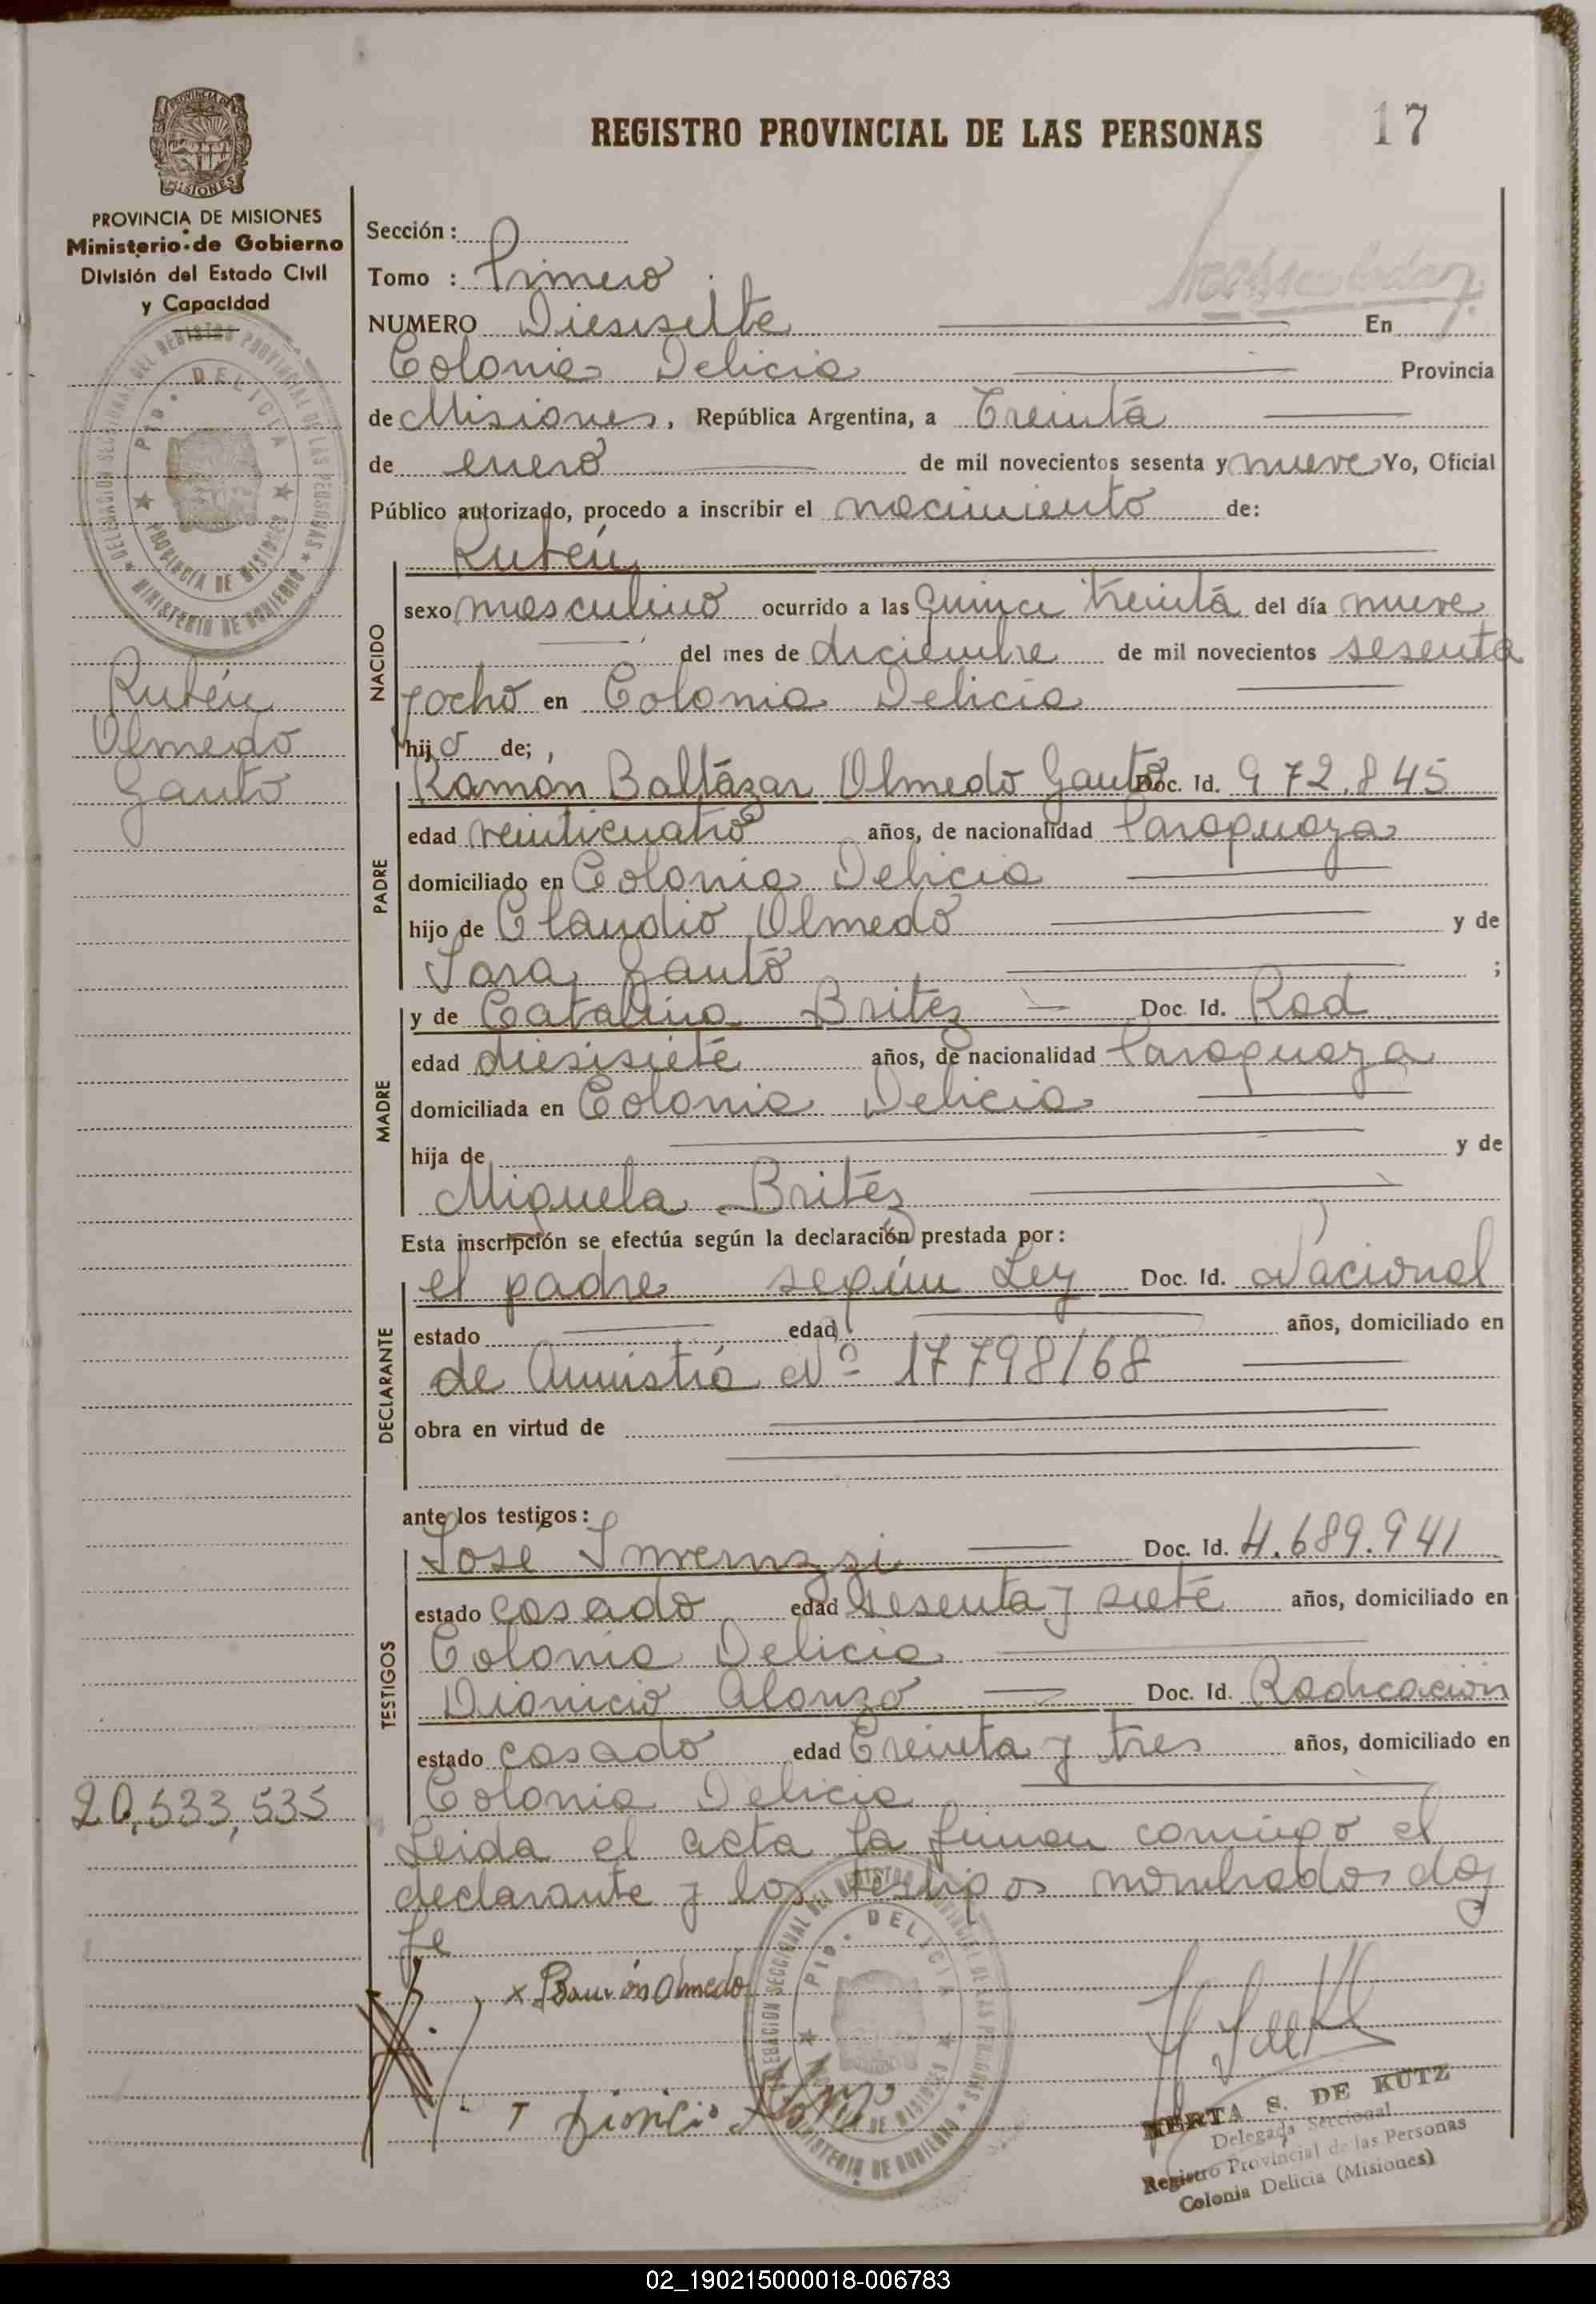 REGISTRO PROVINCIAL DE LAS PERSONAS
17
PROVINCIA DE MISIONES
Ministerio de Gobierno
División del Estado Civil
y Capacidad
Sección :
Tomo : Primero
NUMERO Diesisiete En
Colonia Delicia Provincia
de Misiones, República Argentina, a Treinta
de enero de mil novecientos sesenta y nueve Yo, Oficial
Público autorizado, procedo a inscribir el nacimiento de:
Rubén
NACIDO
sexo masculino ocurrido a las quince treinta del día nueve
del mes de diciembre de mil novecientos sesenta
y ocho en Colonia Delicia
hijo de;
Rubén
Olmedo
Gauto
PADRE
Ramón Baltázar Olmedo Gauto Doc. Id. 972.845
edad veinticuatro años, de nacionalidad Paraguaya
domiciliado en Colonia Delicia
hijo de Claudio Olmedo y de
Sara Gauto ;
MADRE
y de Catalina Britez Doc. Id. Rad
edad diesisiete años, de nacionalidad Paraguaya
domiciliada en Colonia Delicia
hija de y de
Miguela Britéz
Esta inscripción se efectúa según la declaración prestada por :
DECLARANTE
el padre según Ley Doc. Id. Nacional
estado edad años, domiciliado en
de Amnistía Nº 17798/68
obra en virtud de
ante los testigos :
TESTIGOS
José Invernizzi Doc. Id. 4.689.941
estado casado edad sesenta y siete años, domiciliado en
Colonia Delicia
Dionicio Alonzo Doc. Id. Radicación
estado casado edad Treinta y tres años, domiciliado en
Colonia Delicia
20,533,535
Leida el acta la firman conmigo el
declarante y los testigos nombrados doy
fe
x Ramón Olmedo
DELEGACION SECCIONAL DEL REGISTRO PROVINCIAL DE LAS PERSONAS
PTO. DELICIA
PROVINCIA DE MISIONES
MINISTERIO DE GOBIERNO
HERTA S. DE KUTZ
Delegada Seccional
Registro Provincial de las Personas
Colonia Delicia (Misiones)
02_190215000018-006783